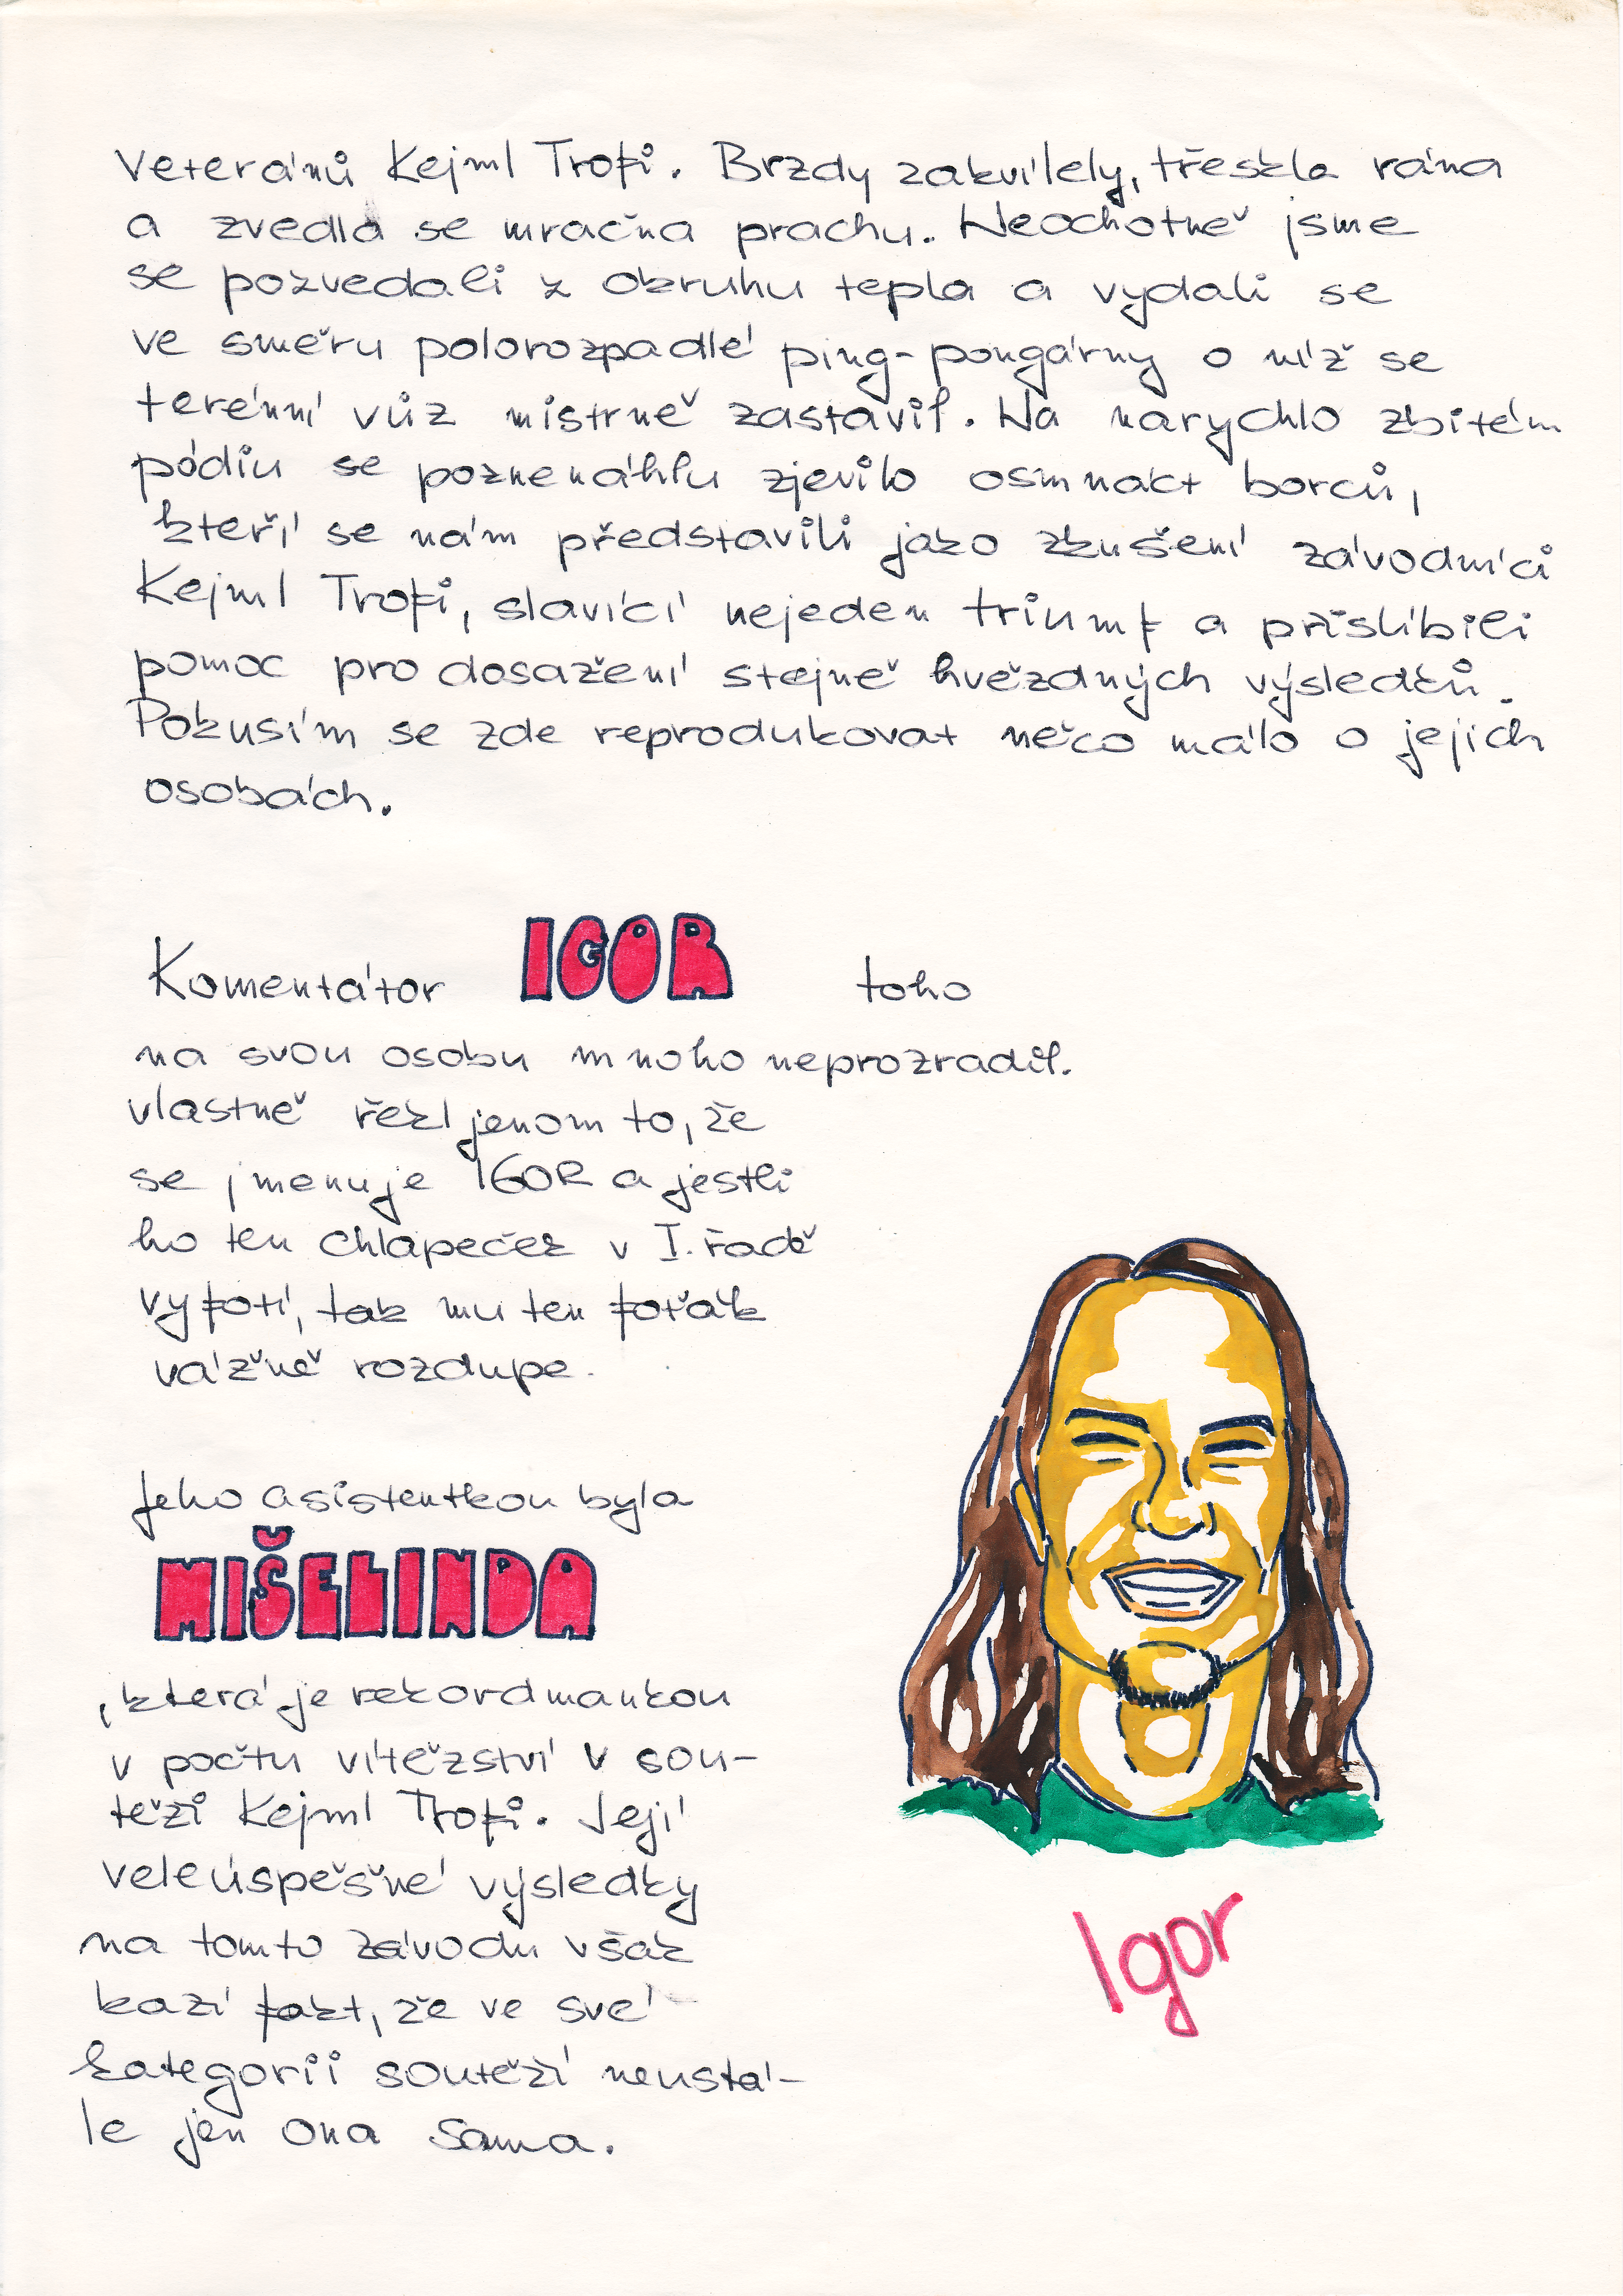 Veteránů Kejml Trofi. Brzdy zakvílely, třeskla rána
a zvedla se mračna prachu. Neochotně jsme
se pozvedali z okruhu tepla a vydali se
ve směru polorozpadlé ping-pongárny o níž se
terénní vůz mistrně zastavil. Na narychlo zbitém
pódiu se poznenáhlu zjevilo osmnáct borců,
kteří se nám představili jako zkušení závodníci
Kejml Trofi, slavící nejeden triumf a přislíbili
pomoc pro dosažení stejně hvězdných výsledků.
Pokusím se zde reprodukovat něco málo o jejich
osobách.
Komentátor IGOR toho
na svou osobu mnoho neprozradil.
vlastně řekl jenom to, že
se jmenuje IGOR a jestli
ho ten chlapeček v I. řadě
vyfotí, tak mu ten foťák
vážně rozdupe.
Jeho asistentkou byla
MIŠELINDA
, která je rekordmankou
v počtu vítězství v sou-
těži Kejml Trofi. Její
veleúspěšné výsledky
na tomto závodu však
kazí fakt, že ve své
kategorii soutěží neustá-
le jen ona sama.
Igor